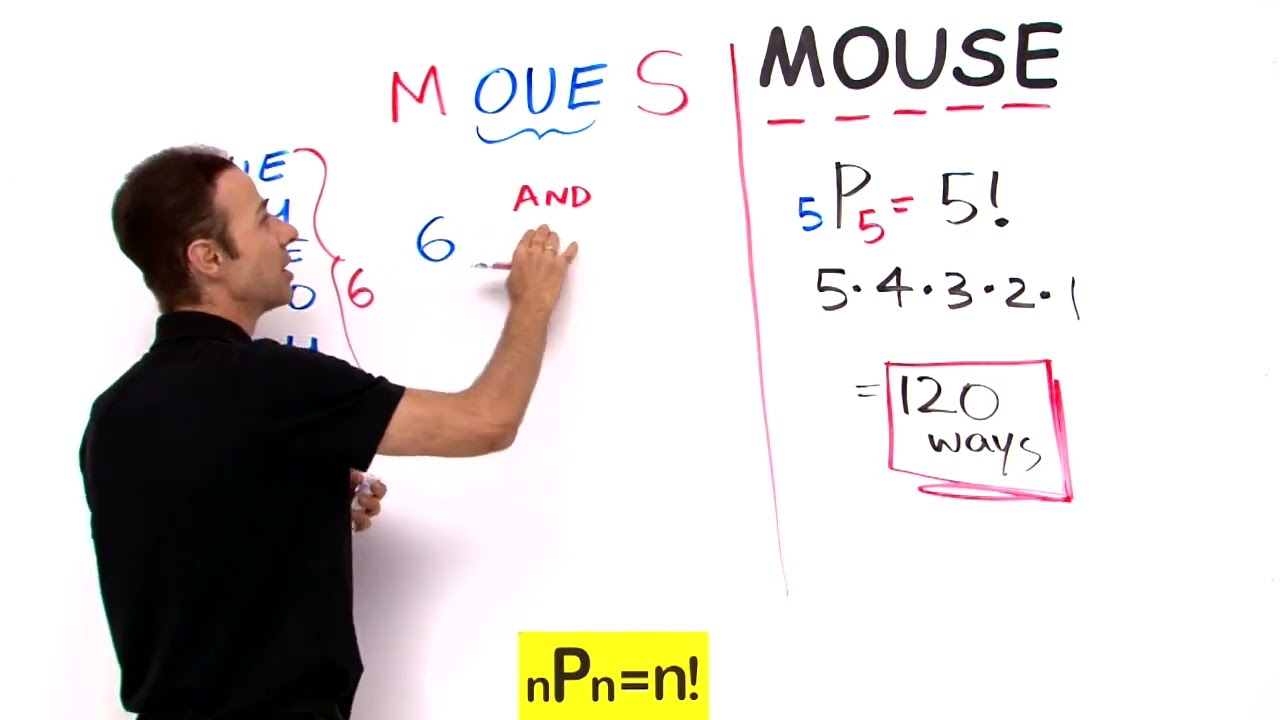 M OUE S
E
AND
6
E
O 6
MOUSE
5P5 = 5!
5·4·3·2·1
= 120
ways
nPn=n!